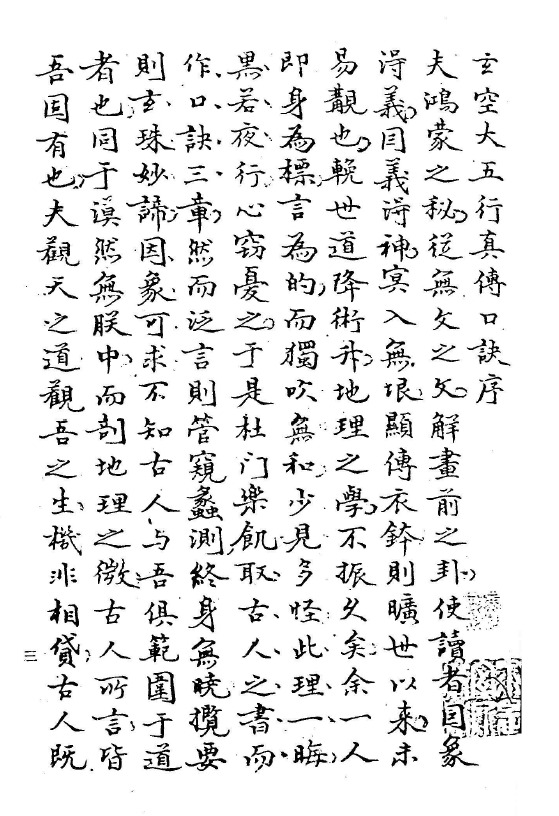 玄空大五行真傳口訣序
夫鴻蒙之秘從無文之文解畫前之卦使讀者因象
淂義因義淂神冥入無垠顯傳衣鉢則曠世以來未
易觀也輓世道降術升地理之學不振久矣余一人
即身為標言為的而獨吹無和少見多怪此理一晦
黑若夜行心竊憂之于是杜门樂飢取古人之書而
作口訣三章然而泛言則管窺蠡測終身無曉攬要
則玄珠妙諦因象可求不知古人与吾俱範圍于道
者也同于漠然無朕中而剖地理之微古人所言皆
吾固有也夫觀天之道觀吾之生機非相貸古人既
三